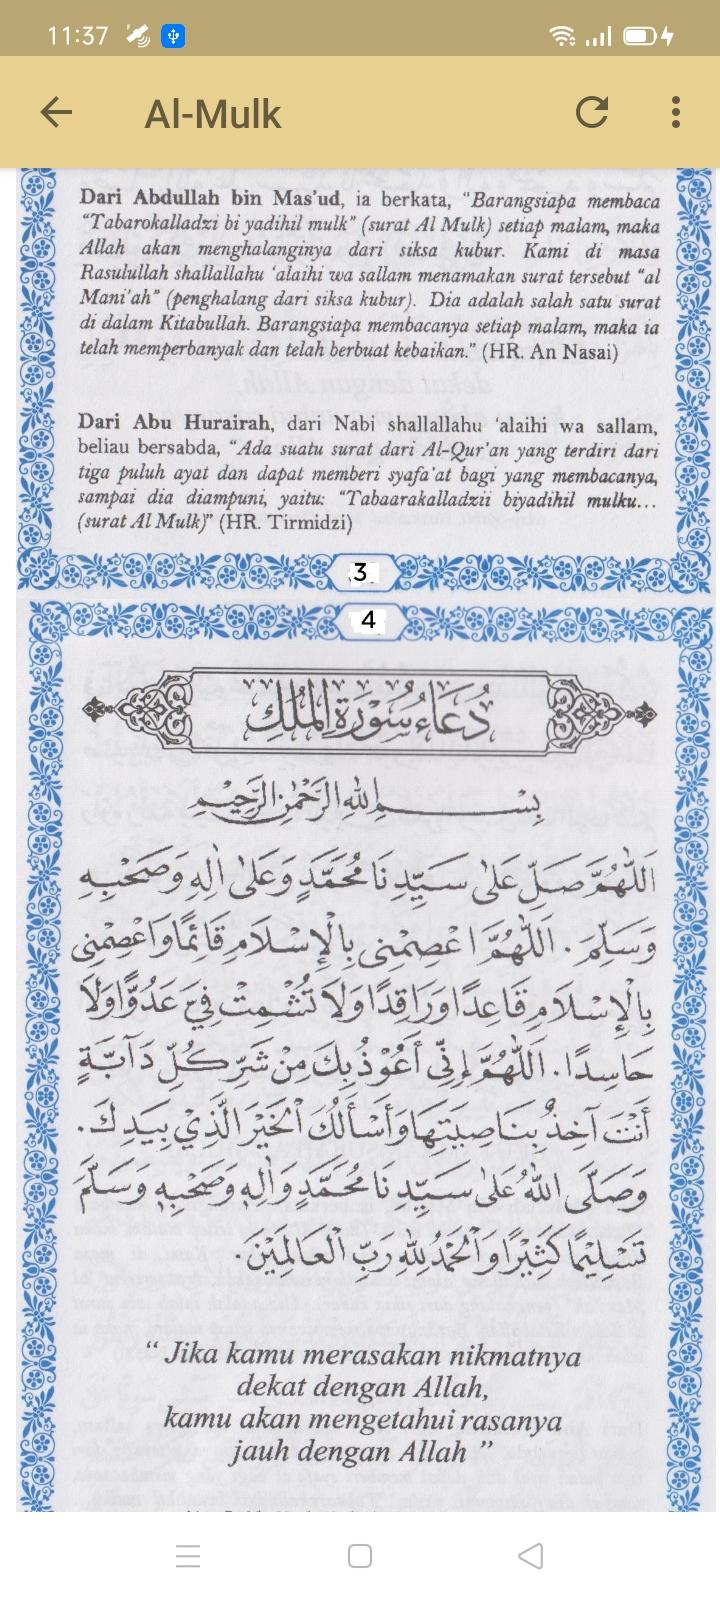 11:37
Al-Mulk
Dari Abdullah bin Mas'ud, ia berkata, "Barangsiapa membaca
"Tabarokalladzi bi yadihil mulk" (surat Al Mulk) setiap malam, maka
Allah akan menghalanginya dari siksa kubur. Kami di masa
Rasulullah shallallahu 'alaihi wa sallam menamakan surat tersebut "al
Mani'ah" (penghalang dari siksa kubur). Dia adalah salah satu surat
di dalam Kitabullah. Barangsiapa membacanya setiap malam, maka ia
telah memperbanyak dan telah berbuat kebaikan." (HR. An Nasai)
Dari Abu Hurairah, dari Nabi shallallahu 'alaihi wa sallam,
beliau bersabda, "Ada suatu surat dari Al-Qur'an yang terdiri dari
tiga puluh ayat dan dapat memberi syafa'at bagi yang membacanya,
sampai dia diampuni, yaitu: "Tabaarakalladzii biyadihil mulku...
(surat Al Mulk)" (HR. Tirmidzi)
3
4
دُعَاءُ سُوْرَةِ الْمُلْكِ
بِسْمِ اللهِ الرَّحْمٰنِ الرَّحِيْمِ
اَللّٰهُمَّ صَلِّ عَلٰى سَيِّدِنَا مُحَمَّدٍ وَعَلٰى اٰلِهِ وَصَحْبِهِ
وَسَلِّمْ . اَللّٰهُمَّ اعْصِمْنِى بِالْإِسْلَامِ قَائِمًا وَاعْصِمْنِى
بِالْإِسْلَامِ قَاعِدًا وَرَاقِدًا وَلَا تُشْمِتْ فِيَّ عَدُوًّا وَلَا
حَاسِدًا . اَللّٰهُمَّ إِنِّى أَعُوْذُ بِكَ مِنْ شَرِّ كُلِّ دَآبَّةٍ
أَنْتَ آخِذٌ بِنَاصِيَتِهَا وَأَسْأَلُكَ الْخَيْرَ الَّذِيْ بِيَدِكَ .
وَصَلَّى اللهُ عَلٰى سَيِّدِنَا مُحَمَّدٍ وَاٰلِهِ وَصَحْبِهِ وَسَلَّمَ
تَسْلِيْمًا كَثِيْرًا وَالْحَمْدُ لِلّٰهِ رَبِّ الْعَالَمِيْنَ.
" Jika kamu merasakan nikmatnya
dekat dengan Allah,
kamu akan mengetahui rasanya
jauh dengan Allah "